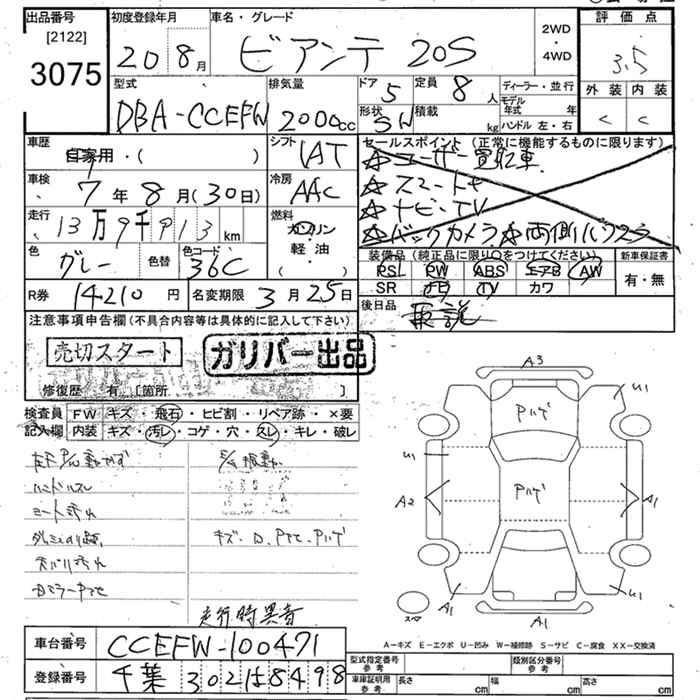 出品番号 初度登録年月 車名・グレード 2WD・4WD 評価点
[2122]
3075 20 8月 ビアンテ 20S 3.5
型式 排気量 ドア 定員 ディーラー・並行 外装 内装
DBA-CCEFW 2000cc 5 8人 モデル年式 年 C C
形状 SW 積載 kg ハンドル 左・右
車歴 シフト セールスポイント (正常に機能するものに限ります)
自家用・( ) IAT ☆ユーザー買取車
車検 冷房 ☆スマートキー
7年8月(30日) AAC ☆ナビ・TV
走行 燃料 ☆バックカメラ ☆両側パワスラ
13万9千913km ガソリン・軽油・( )
色 色替 色コード 装備品 (純正品に限り○をつけてください) 新車保証書
グレー 36C PSL PW ABS エアB AW 有・無
SR ナビ TV カワ
R券 14210円 名変期限 3月25日 後日品 取説
注意事項申告欄 (不具合内容等は具体的に記入して下さい)
売切スタート ガリバー出品
修復歴 有 [箇所 ]
検査員 FW キズ・飛石・ヒビ割・リペア跡・×要
記入欄 内装 キズ・汚レ・コゲ・穴・スレ・キレ・破レ
ハンドルスレ
シート汚れ
天バリ汚れ
キズ・凹
走行時異音
A3
U1
Pハゲ
U1
A2
Pハゲ
A1
A1
U1
スペア
A1
A-キズ E-エクボ U-凹み W-補修跡 S-サビ C-腐食 XX-交換済
車台番号 CCEFW-100471
型式指定番号 参考 類別区分番号 参考
登録番号 千葉302は8498
車庫証明用 参考 長さ cm 幅 cm 高さ cm